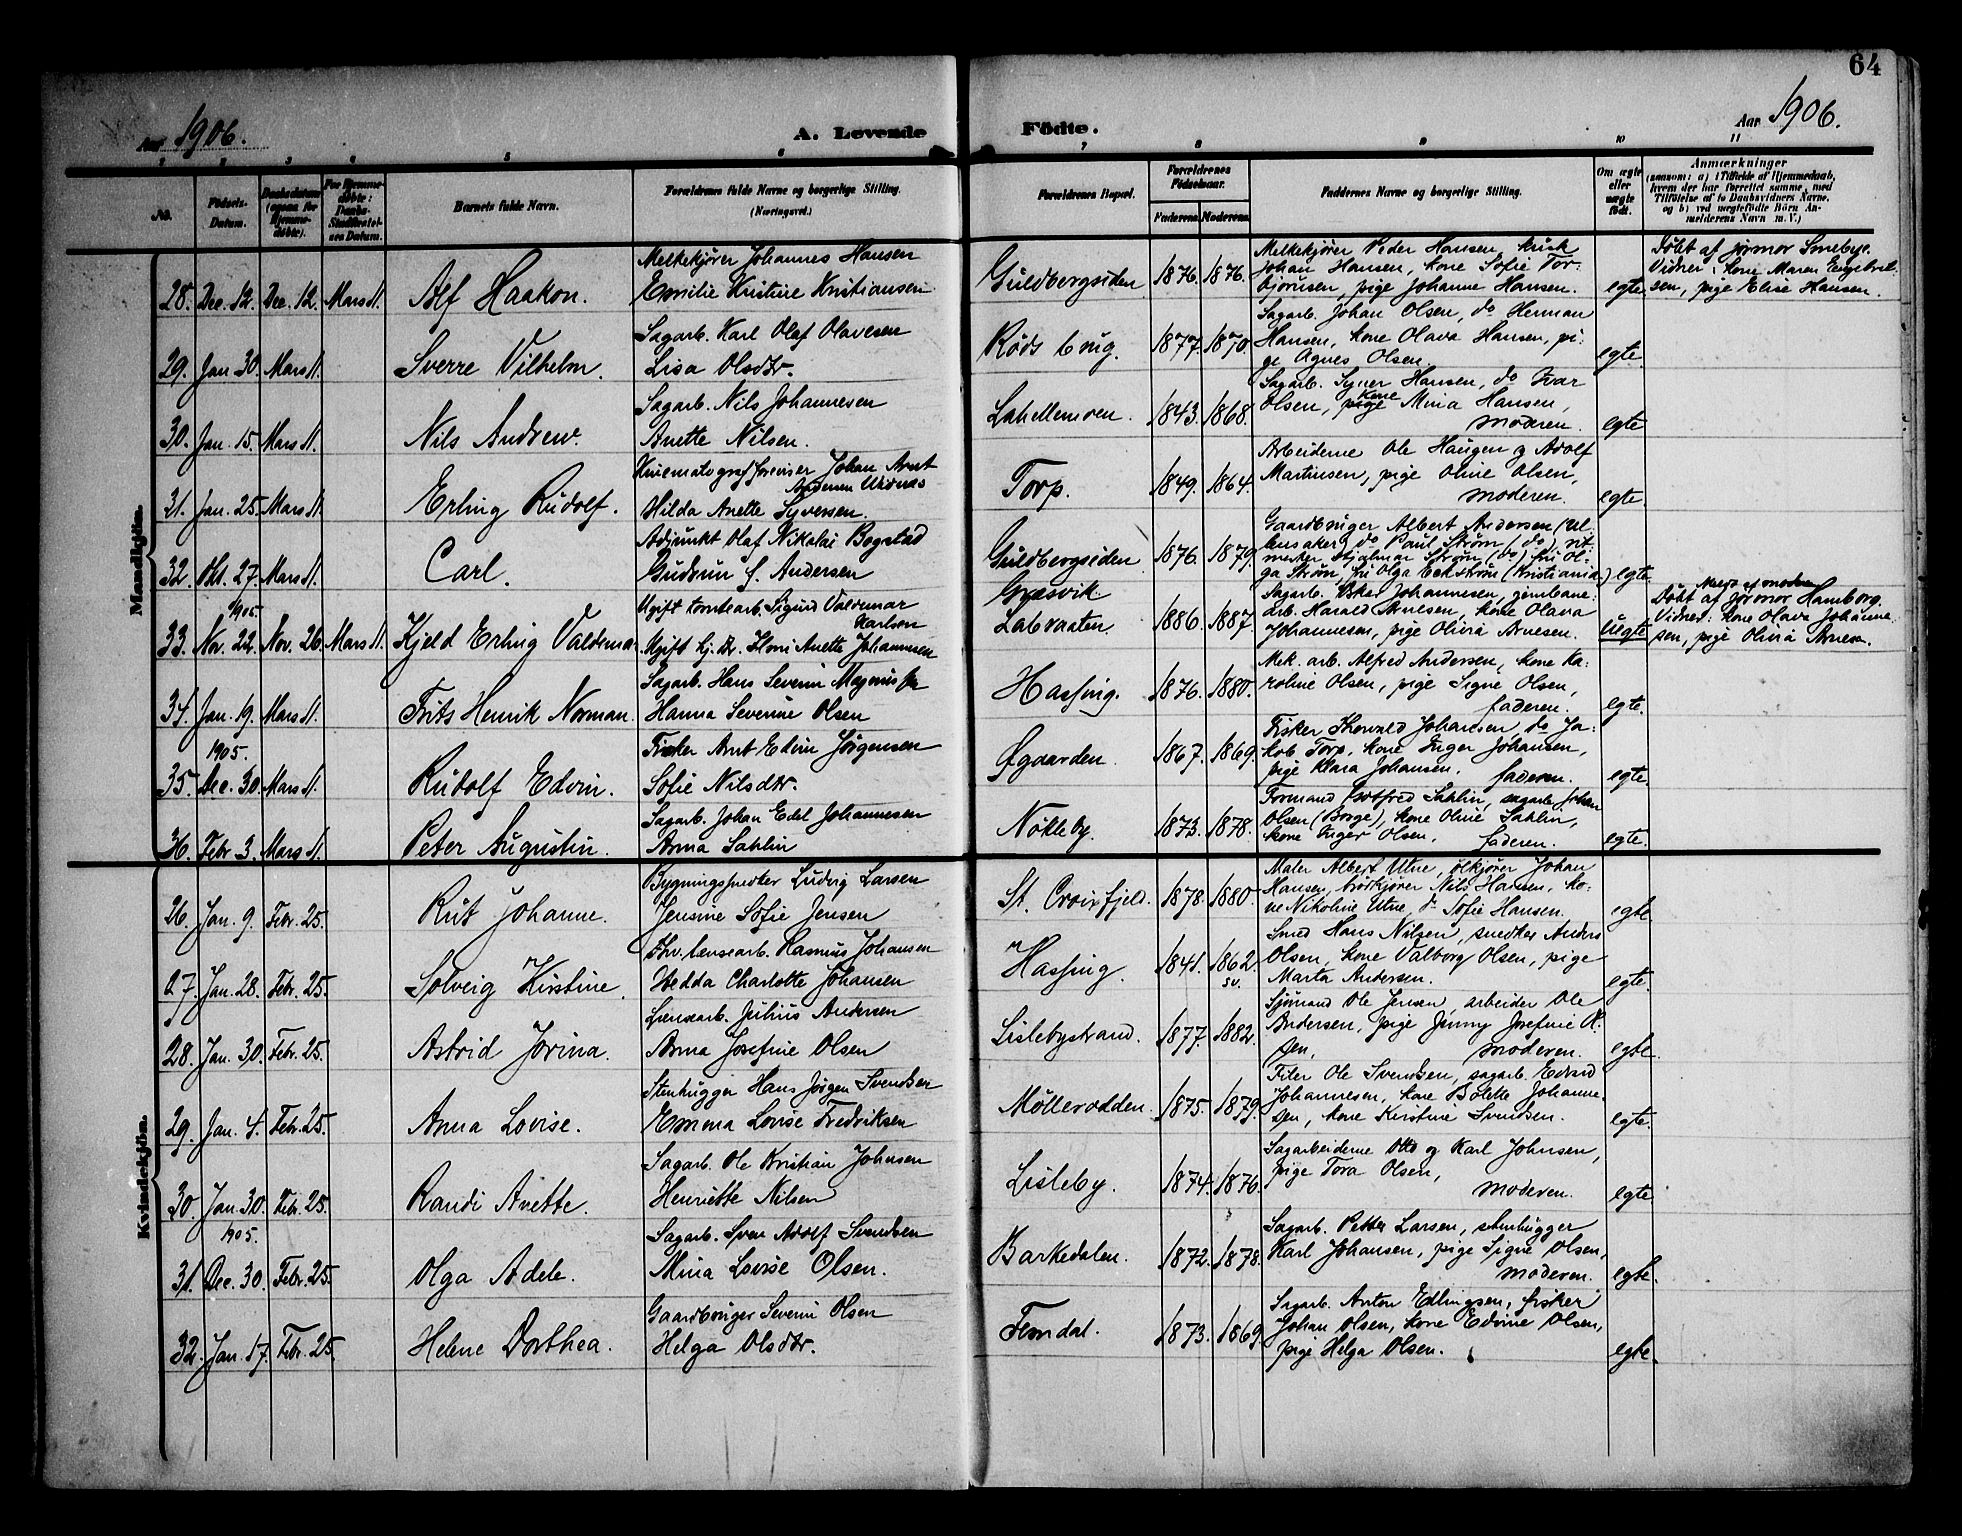 64
Aar 1906.
A. Levende
Födte.
Aar 1906.
1 2 3 4 5 6 7 8 9 10 11
No.
Födsels-
Datum.
Daabsdatum
(ogsaa for
Hjemme-
döbte).
For Hjemme-
döbte:
Daabs-
Stadfæstel-
sens Datum.
Barnets fulde Navn.
Forældrenes fulde Navne og borgerlige Stilling.
(Næringsvei.)
Forældrenes Bopæl.
Forældrenes
Födselsaar.
Faderens. Moderens.
Faddernes Navne og borgerlige Stilling.
Om ægte
eller
uægte
født.
Anmærkninger
(saasom: a) i Tilfælde af Hjemmedaab,
hvem der har forrettet samme, med
Tilföielse af to Daabsvidners Navne,
og b) ved uægtefödte Börn An-
melderens Navn m. V.)
Mandkjön.
28. Dec. 12. Dec. 12. Mars 11. Alf Haakon.
Melkekjører Johannes Hansen
Emilie Kristine Kristiansen
Guldbergsiden 1876. 1876.
Melkekjører Peder Hansen, kusk
Johan Hansen, kone Sofie Tor-
bjørnsen, pige Johanne Hansen. egte.
Døbt af jormor Smebye.
Vidner: kone Maren Engebret-
sen, pige Elise Hansen.
29. Jan 30. Mars 11. Sverre Vilhelm.
Sagarb. Karl Olaf Olavesen
Lisa Olsdtr.
Røds brug. 1877. 1870.
Sagarb. Johan Olsen, do Herman
Hansen, kone Olava Hansen, pi-
ge Agnes Olsen. egte.
30. Jan. 15. Mars 11. Nils Andrew.
Sagarb. Nils Johannesen
Anette Nilsen.
Lahellemoen. 1843. 1868.
Sagarb. Syver Hansen, do Ivar
Olsen, pige kone Mina Hansen,
moderen. egte
31. Jan. 25. Mars 11. Erling Rudolf.
Kinematografforeviser Johan Arnt
Andersen
Hilda Anette Syversen.
Torp. 1849. 1864.
Arbeiderne Ole Haugen og Adolf
Martinsen, pige Oline Olsen,
moderen. egte.
32. Okt. 27. Mars 11. Carl.
1905.
Adjunkt Olaf Nikolai Bogstad
Gudrun f. Andersen
Guldbergsiden 1876. 1879.
Gaardbruger Albert Andersen (Ul-
lensaker) do Paul Strøm (do), rit-
mester Hjalmar Strøm (do), fru Ol-
ga Strøm, fru Olga Eckstrøm (Kristiania.) egte.
33. Nov. 22. Nov. 26. Mars 11. Kjeld Erling Valdemar
Ugift tomtearb. Sigurd Valdemar
Karlsen
Ugift tj. Anette Johannesen
Græsvik.
Labraaten 1886. 1887.
Sagarb. Johannesen, jernbane-
arb. Harald Arnesen, kone Olava
Johannesen, pige Olivia Arnesen. Uegte.
Meldt af moderen
Døbt af jormor Hamborg.
Vidner: kone Olava Johanne-
sen, pige Olivia Arnesen.
34. Jan. 19. Mars 11. Frits Henrik Norman.
Sagarb. Hans Severin Magnussen
Hanna Severine Olsen
Hassing. 1876. 1880.
Mek. arb. Alfred Andersen, kone Ka-
roline Olsen, pige Signe Olsen,
faderen. egte.
1905.
35. Dec. 30. Mars 11. Rudolf Edvin.
Fisker Arnt Edvin Jørgensen
Sofie Nilsdtr.
Øgaarden. 1867. 1869.
Fisker Thorvald Johansen, do Ja-
kob Torp, kone Inger Johansen,
pige Klara Johansen. faderen. egte.
36. Febr 3. Mars 11. Peter Augustin.
Sagarb. Johan Edel Johannesen
Anna Sahlin
Nøkleby. 1873. 1878.
Formand Gotfred Sahlin, sagarb. Johan
Olsen (Borge), kone Oline Sahlin,
kone Inger Olsen. faderen. egte.
Kvindekjön.
26. Jan. 9. Febr. 25. Rut Johanne.
Bygningssnedker Ludvig Larsen
Jensine Sofie Jensen
St. Croixfjeld. 1878. 1880.
Maler Albert Utne, ølkjører Johan
Hansen, brødkjører Nils Hansen, ko-
ne Nikoline Utne, do Sofie Hansen. egte.
27. Jan. 28. Febr. 25. Solveig Kirstine.
Fhv. lænsearb. Rasmus Johansen
Hedda Charlotte Johansen
Hassing 1841. 1862.
sv.
Smed Hans Nilsen, snedker Anders
Olsen, kone Valborg Olsen, pige
Marta Andersen. egte.
28. Jan. 30. Febr. 25. Astrid Jorina.
Lænsearb. Julius Andersen
Anna Josefine Olsen
Lislebystrand. 1877. 1882.
Sjømand Ole Jensen, arbeider Ole
Andersen, pige Jenny Josefine Ol-
sen, moderen. egte.
29. Jan. 4. Febr. 25. Anna Lovise.
Stenhugger Hans Jørgen Svendsen
Emma Lovise Fredriksen
Møllerodden. 1875. 1879.
Filer Ole Svendsen, sagarb. Edvard
Johannesen, kone Bolette Johanne-
sen, kone Kirstine Svendsen. egte.
30. Jan. 30. Febr. 25. Randi Anette.
Sagarb. Ole Kristian Johnsen
Henriette Nilsen
Lisleby. 1874. 1876.
Sagarbeiderne Otto og Karl Johnsen,
pige Tora Olsen,
moderen. egte
1905.
31. Dec. 30. Febr. 25. Olga Adele.
Sagarb. Sven Adolf Svendsen
Mina Lovise Olsen.
Barkedalen. 1872. 1878.
Sagarb. Petter Larsen, stenhugger
Karl Johansen, pige Signe Olsen,
moderen. egte.
32. Jan. 17. Febr. 25. Helene Dorthea.
Gaardbruger Severin Olsen
Helga Olsdtr.
Femdal. 1873. 1869.
Sagarb. Anton Edlingsen, fisker
Johan Olsen, kone Edvine Olsen,
pige Helga Olsen. egte.